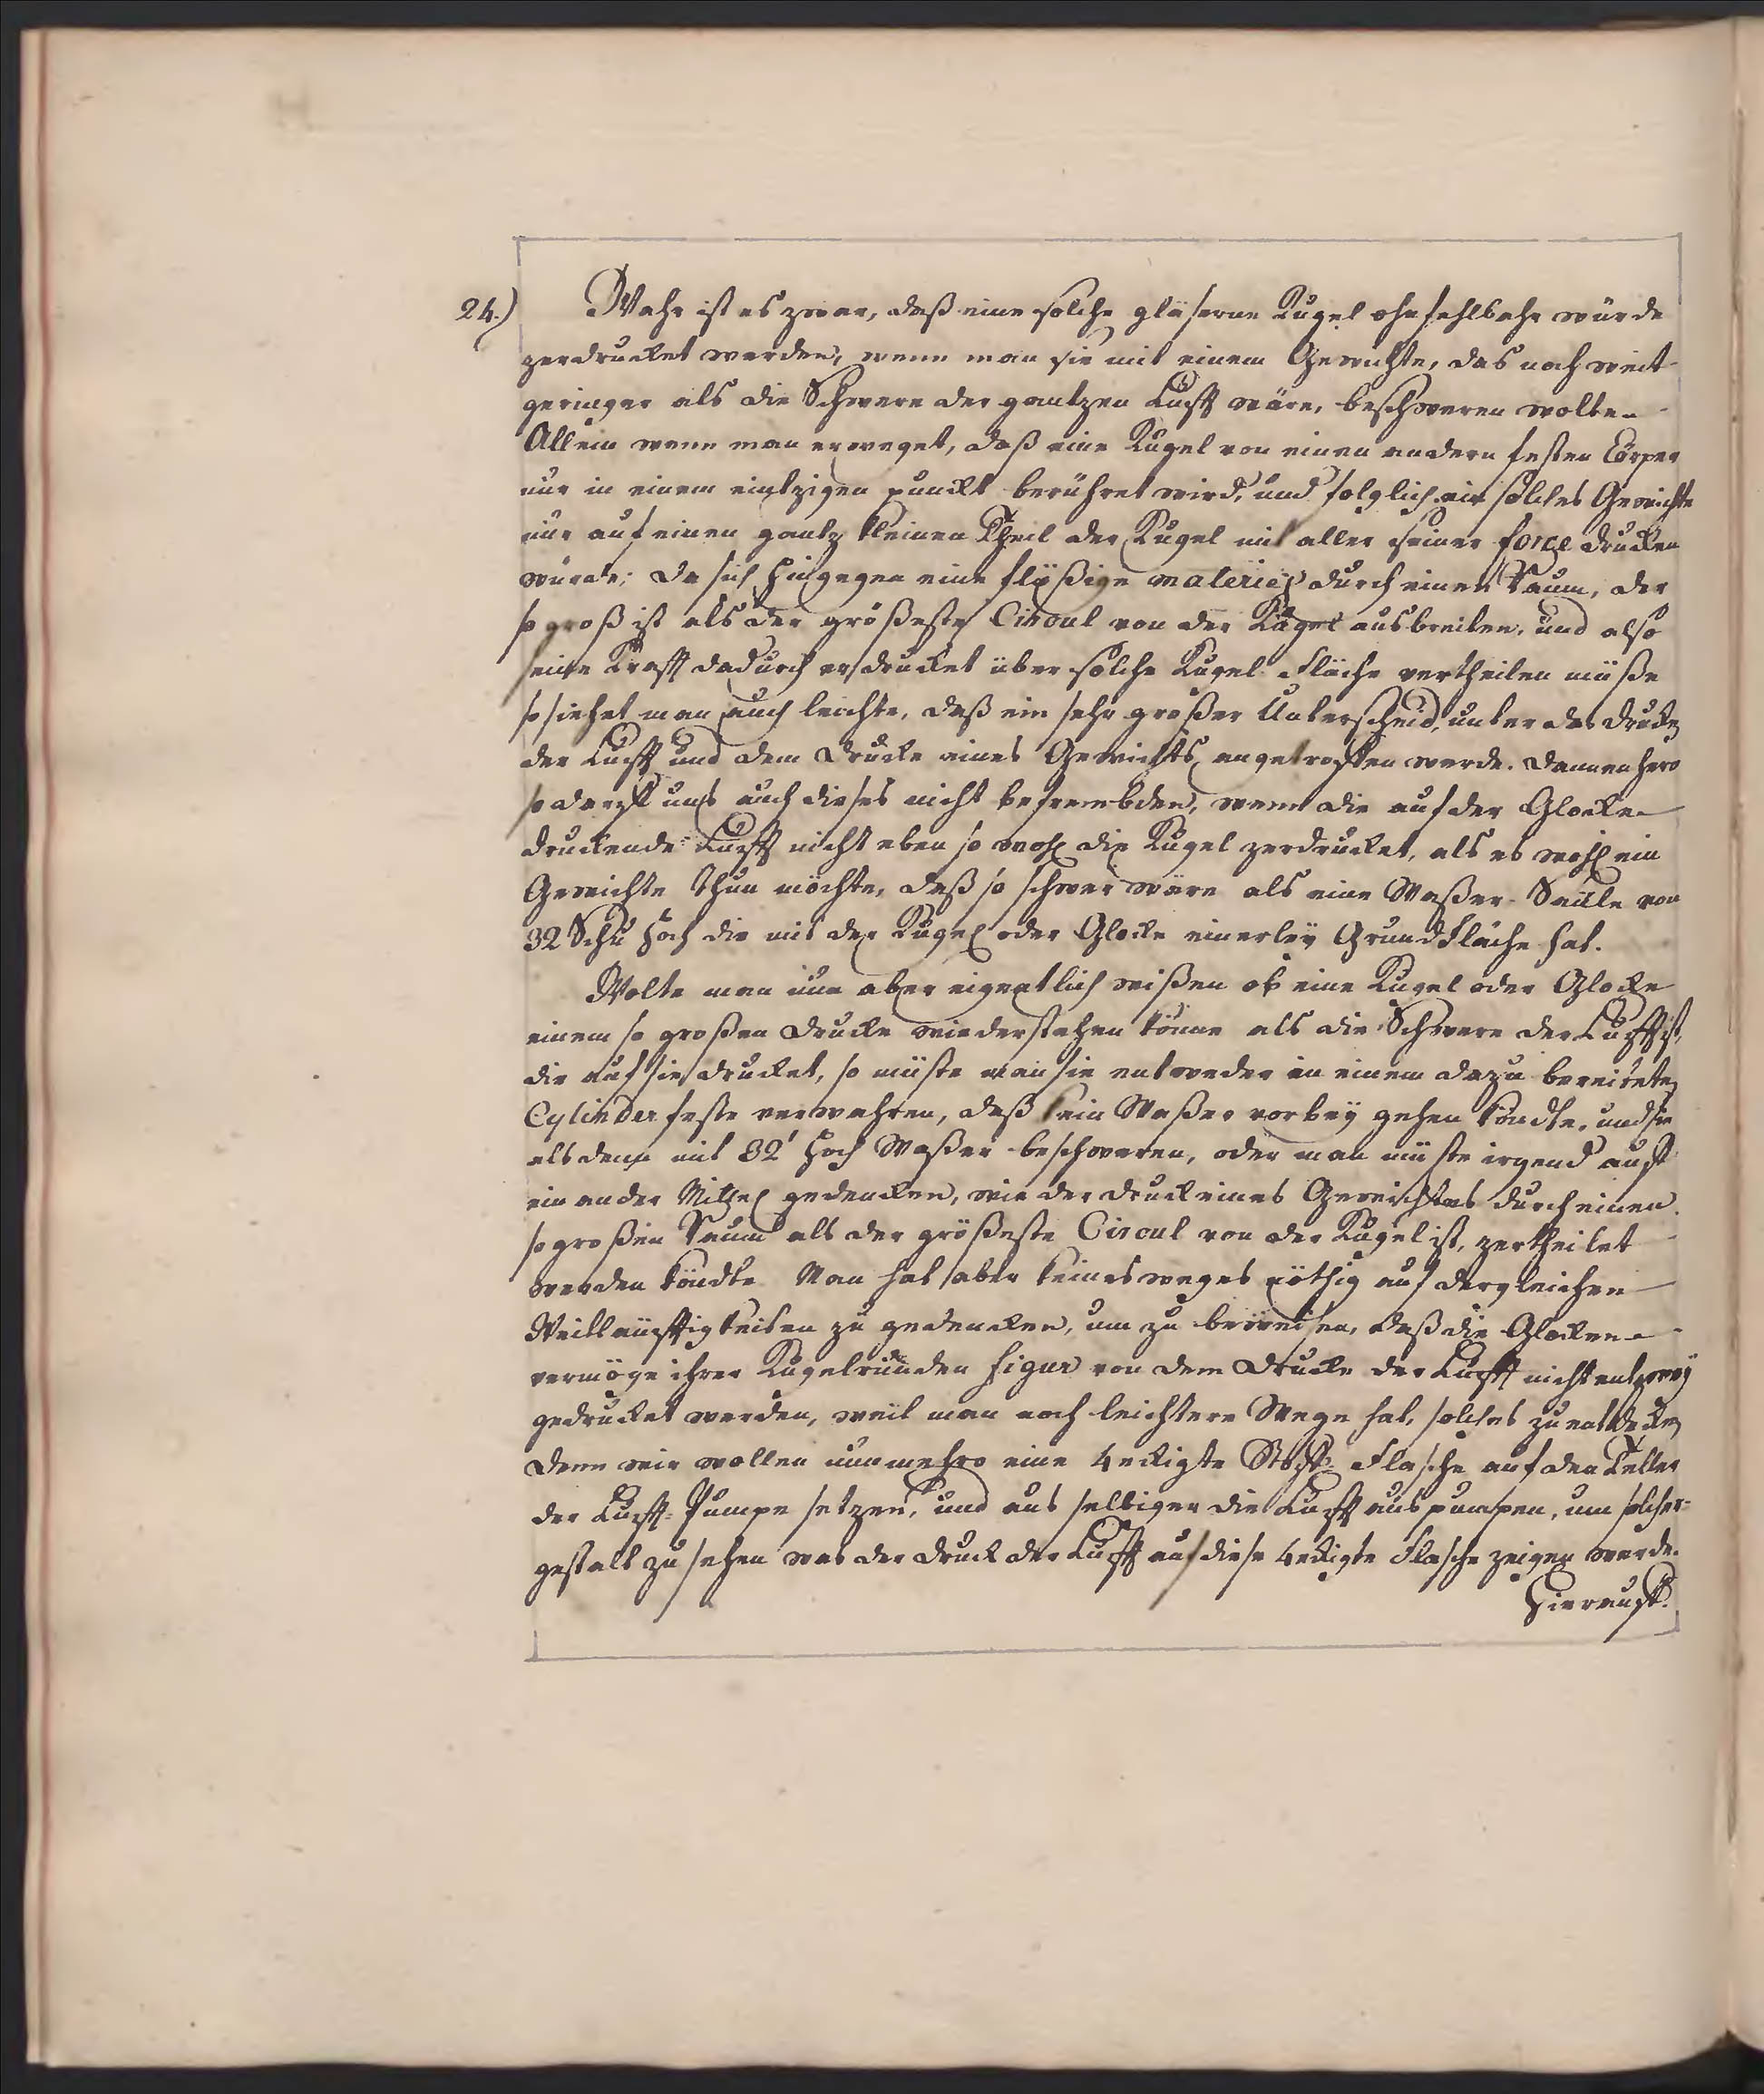 24.) Wahr ist es zwar, daß eine solche gläserne Kugel ohnfehlbahr würde
zerdrucket werden, wenn man sie mit einem Gewichte, das noch weit
geringer als die Schwere der gantzen Lufft wäre, beschweren wolte.
Allein wenn man erweget, daß eine Kugel von einen andern festen Cörper
nur in einem eintzigen punckt berühret wird, und folglich ein solches Gewichte
nur auf einen gantz kleinen Theil der Kugel mit aller seiner force drucken
würde; Da sich hingegen eine flüßige materie durch einen Raum, der
so groß ist als der größeste Circul von der Kugel ausbreiten, und also
seine Krafft dadurch erdrucket über solche Kugel-Fläche vertheilen müße
so siehet man auch leichte, daß ein sehr großer Unterscheid, unter des Drucke
der Lufft und dem Drucke eines Gewichts, angetroffen werde. Dannenhero
so darff uns auch dieses nicht befrembden, wenn die auf der Glocke
druckende Lufft nicht eben so wohl die Kugel zerdrucket, als es wohl ein
Gewichte thun möchte, daß so schwer wäre als eine Waßer-Seüle von
32 Schu hoch die mit der Kugel oder Glocke einerley Grundfläche hat.
Wolte man nun aber eigentlich wißen ob eine Kugel oder Glocke
einem so großen Drucke wiederstehen könne als die Schwere der Lufft ist,
die auf sie drucket, so müste man sie entweder in einem dazu bereiteten
Cylinder feste verwahren, daß kein Waßer vorbey gehen köndte, und sie
als denn mit 32' hoch Waßer beschweren, oder man müste irgend auff
ein ander Mittel gedencken, wie der Druck eines Gewichtes durch einen
so großen Raum als der größeste Circul von der Kugel ist, zertheilet
werden köndte. Man hat aber keinesweges nöthig auf dergleichen
Weitläufftigkeiten zu gedencken, um zu beweisen, daß die Glocken
vermöge ihrer Kugelrunden figur von dem Drucke der Lufft nicht entzwey
gedrucket werden, weil man noch leichtere Wege hat, solches zu entdecken
Denn wir wollen nunmehro eine 4eckigte Flasche auf den Teller
der Lufft-Pumpe setzen, und aus selbiger die Lufft auspumpen, um solcher-
gestalt zu sehen was der Druck der Lufft auf diese 4eckigte Flasche zeigen werde.
Hierauff.